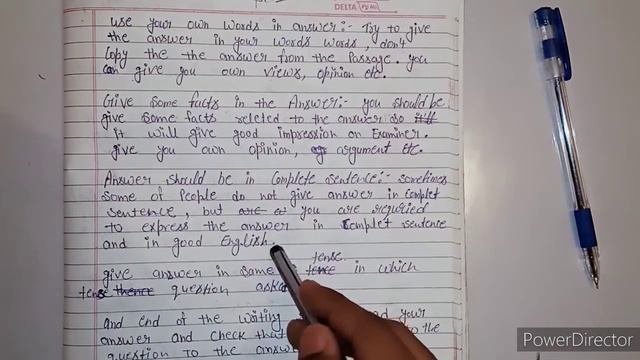 DELTA
use your own words in answer:- Try to give
the answer in your words words, don't
Copy the the answer from the Passage. you
can give you own views, opinion etc.
Give some facts in the Answer:- you should be
give some facts releted to the answer so
It will give good impression on Examiner.
give you own opinion, argument etc.
Answer should be in complete sentence:- sometimes
some of people do not give answer in complet
sentence, but you are requried
to express the answer in complet sentence
and in good English.
tense.
give answer in same in which
tense question asked
and end of the writing your
answer and check that to the
question to the answer
PowerDirector